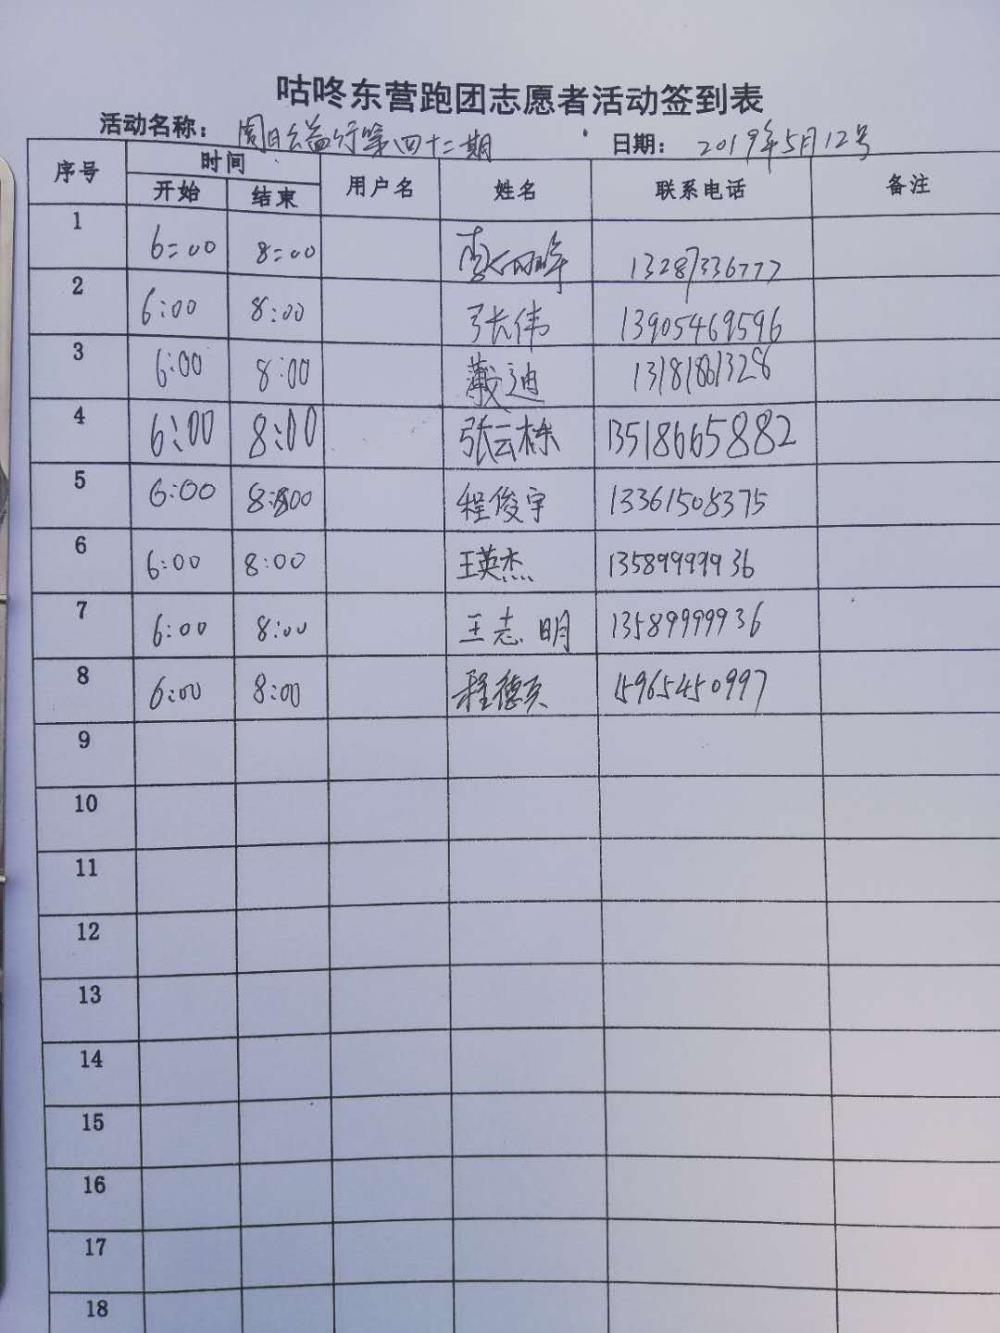 咕咚东营跑团志愿者活动签到表
活动名称： 周日公益行第四十二期 日期： 2019年5月12号
序号 时间 用户名 姓名 联系电话 备注
开始 结束
1 6:00 8:00 13287336777
2 6:00 8:00 张伟 13905469596
3 6:00 8:00 迪 13181861328
4 6:00 8:00 张云栋 13518665882
5 6:00 8:00 程俊宇 13361508375
6 6:00 8:00 王英杰 13589999936
7 6:00 8:00 王志明 13589999936
8 6:00 8:00 程德 15965450997
9
10
11
12
13
14
15
16
17
18